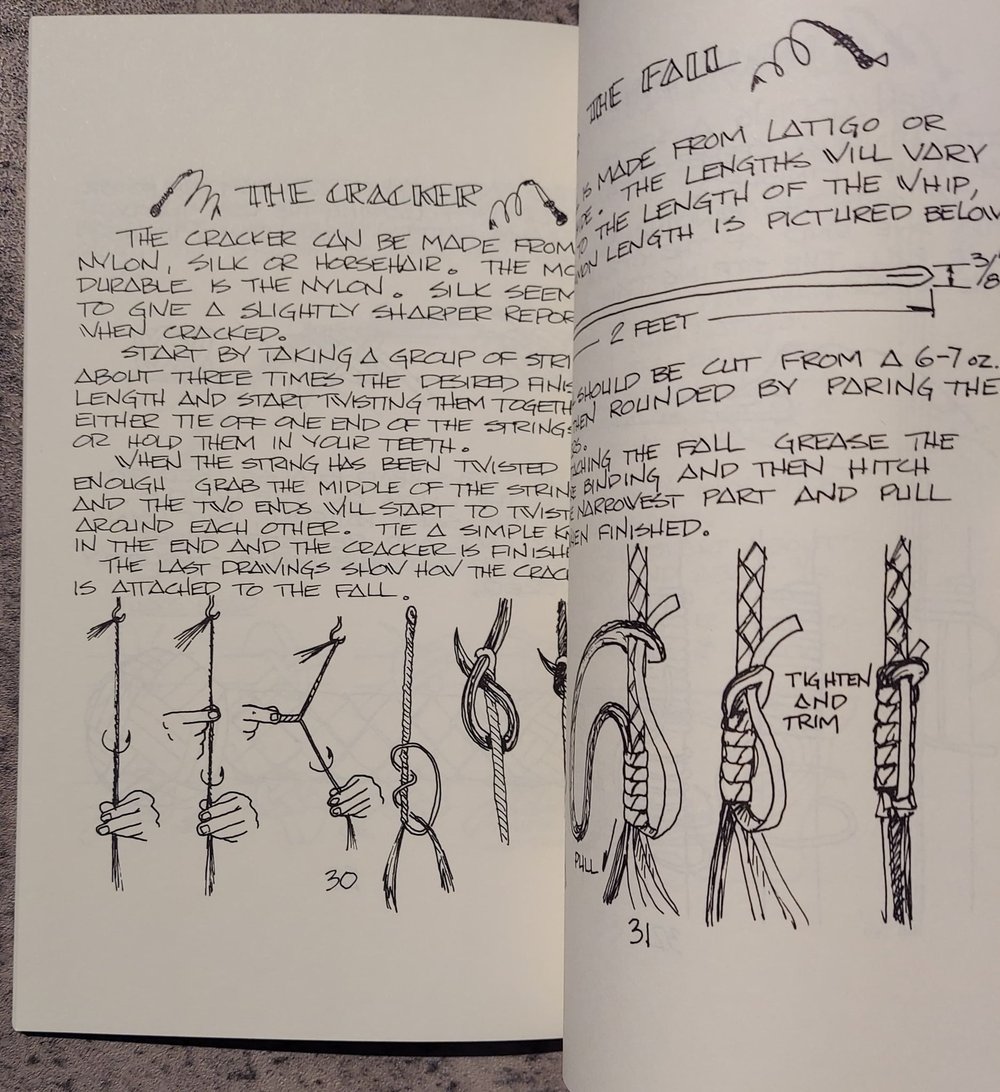 THE CRACKER
THE CRACKER CAN BE MADE FROM
NYLON, SILK OR HORSEHAIR. THE MO
DURABLE IS THE NYLON. SILK SEEM
TO GIVE A SLIGHTLY SHARPER REPOR
WHEN CRACKED.
START BY TAKING A GROUP OF STRI
ABOUT THREE TIMES THE DESIRED FINIS
LENGTH AND START TWISTING THEM TOGETH
EITHER TIE OFF ONE END OF THE STRINGS
OR HOLD THEM IN YOUR TEETH.
WHEN THE STRING HAS BEEN TWISTED
ENOUGH GRAB THE MIDDLE OF THE STRIN
AND THE TWO ENDS WILL START TO TWIST
AROUND EACH OTHER. TIE A SIMPLE K
IN THE END AND THE CRACKER IS FINISHE
THE LAST DRAWINGS SHOW HOW THE CRAC
IS ATTACHED TO THE FALL.
30
THE FALL
IS MADE FROM LATIGO OR
IDE. THE LENGTHS WILL VARY
TO THE LENGTH OF THE WHIP,
MON LENGTH IS PICTURED BELOW
3/8"
2 FEET
SHOULD BE CUT FROM A 6-7 OZ.
HEN ROUNDED BY PARING THE
ACHING THE FALL GREASE THE
E BINDING AND THEN HITCH
E NARROWEST PART AND PULL
HEN FINISHED.
TIGHTEN
AND
TRIM
PULL
31